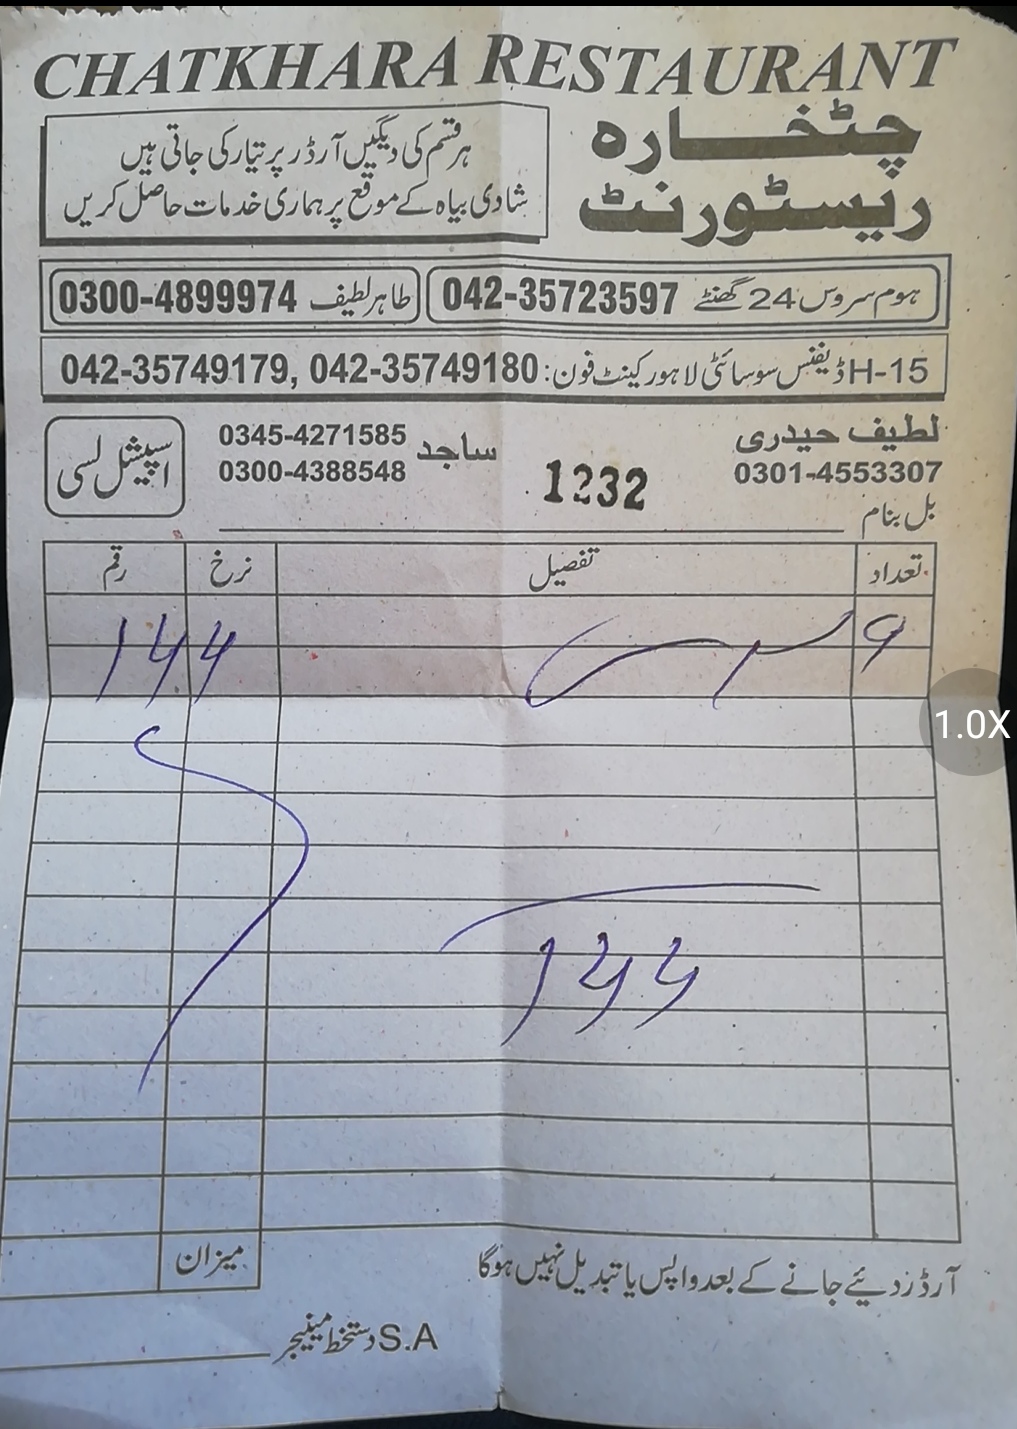 CHATKHARA RESTAURANT
چٹخارہ
ریسٹورنٹ
ہر قسم کی دیگیں آرڈر پر تیار کی جاتی ہیں
شادی بیاہ کے موقع پر ہماری خدمات حاصل کریں
ہوم سروس 24 گھنٹے 042-35723597
طاہر لطیف 0300-4899974
H-15 ڈیفنس سوسائٹی لاہور کینٹ فون: 042-35749179, 042-35749180
لطیف حیدری
0301-4553307
ساجد 0345-4271585
0300-4388548
اسپیشل لسی
1232
بل بنام
تعداد تفصیل نرخ رقم
میزان
آرڈر دئیے جانے کے بعد واپس یا تبدیل نہیں ہوگا
S.A دستخط مینیجر
1.0X